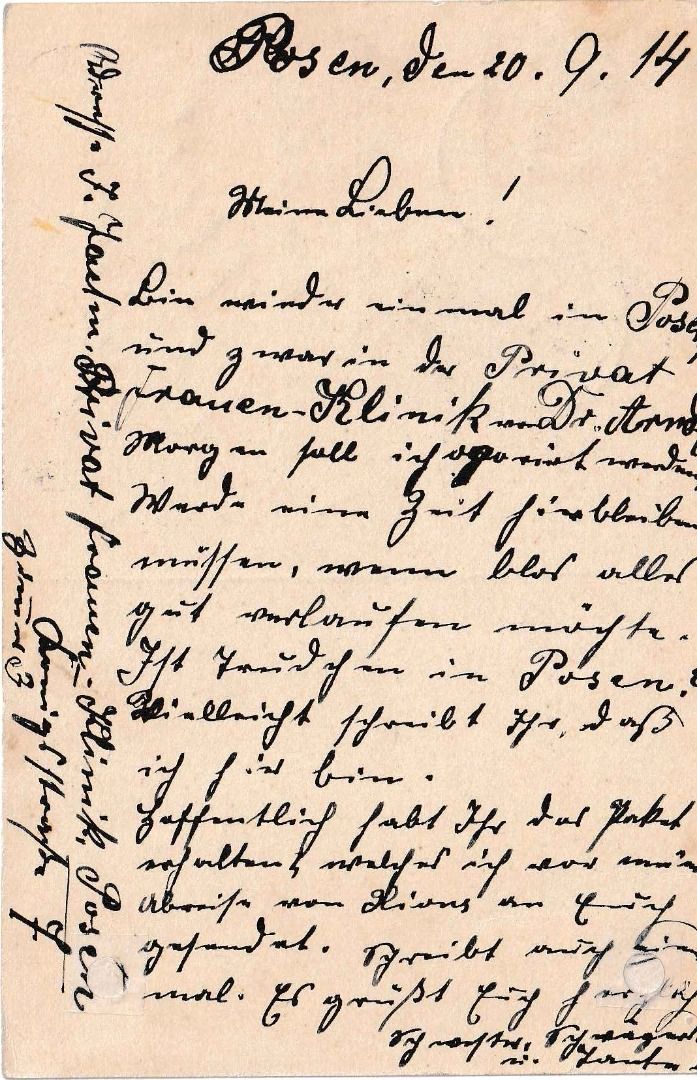 Posen, den 20. 9. 14
Meine Lieben!
Bin wieder einmal in Pos
und zwar in der Privat
Frauen-Klinik von Dr. Arnd
Morgen soll ich operirt werden
Werde eine Zeit hierbleiben
müssen, wenn blos alles
gut verlaufen möchte.
Ist Trudchen in Posen,
Vielleicht schreibt Ihr, daß
ich hier bin.
Hoffentlich habt Ihr das Paket
erhalten, welches ich vor mein
Abreise von Xions an Euch
gesendet. Schreibt auch ein
mal. Es grüßt Euch herzlich
Schwester, Schwägeri
u. Tante.
Adresse J. Privat Frauen-Klinik, Posen
Königsstraße
Zimmer 3